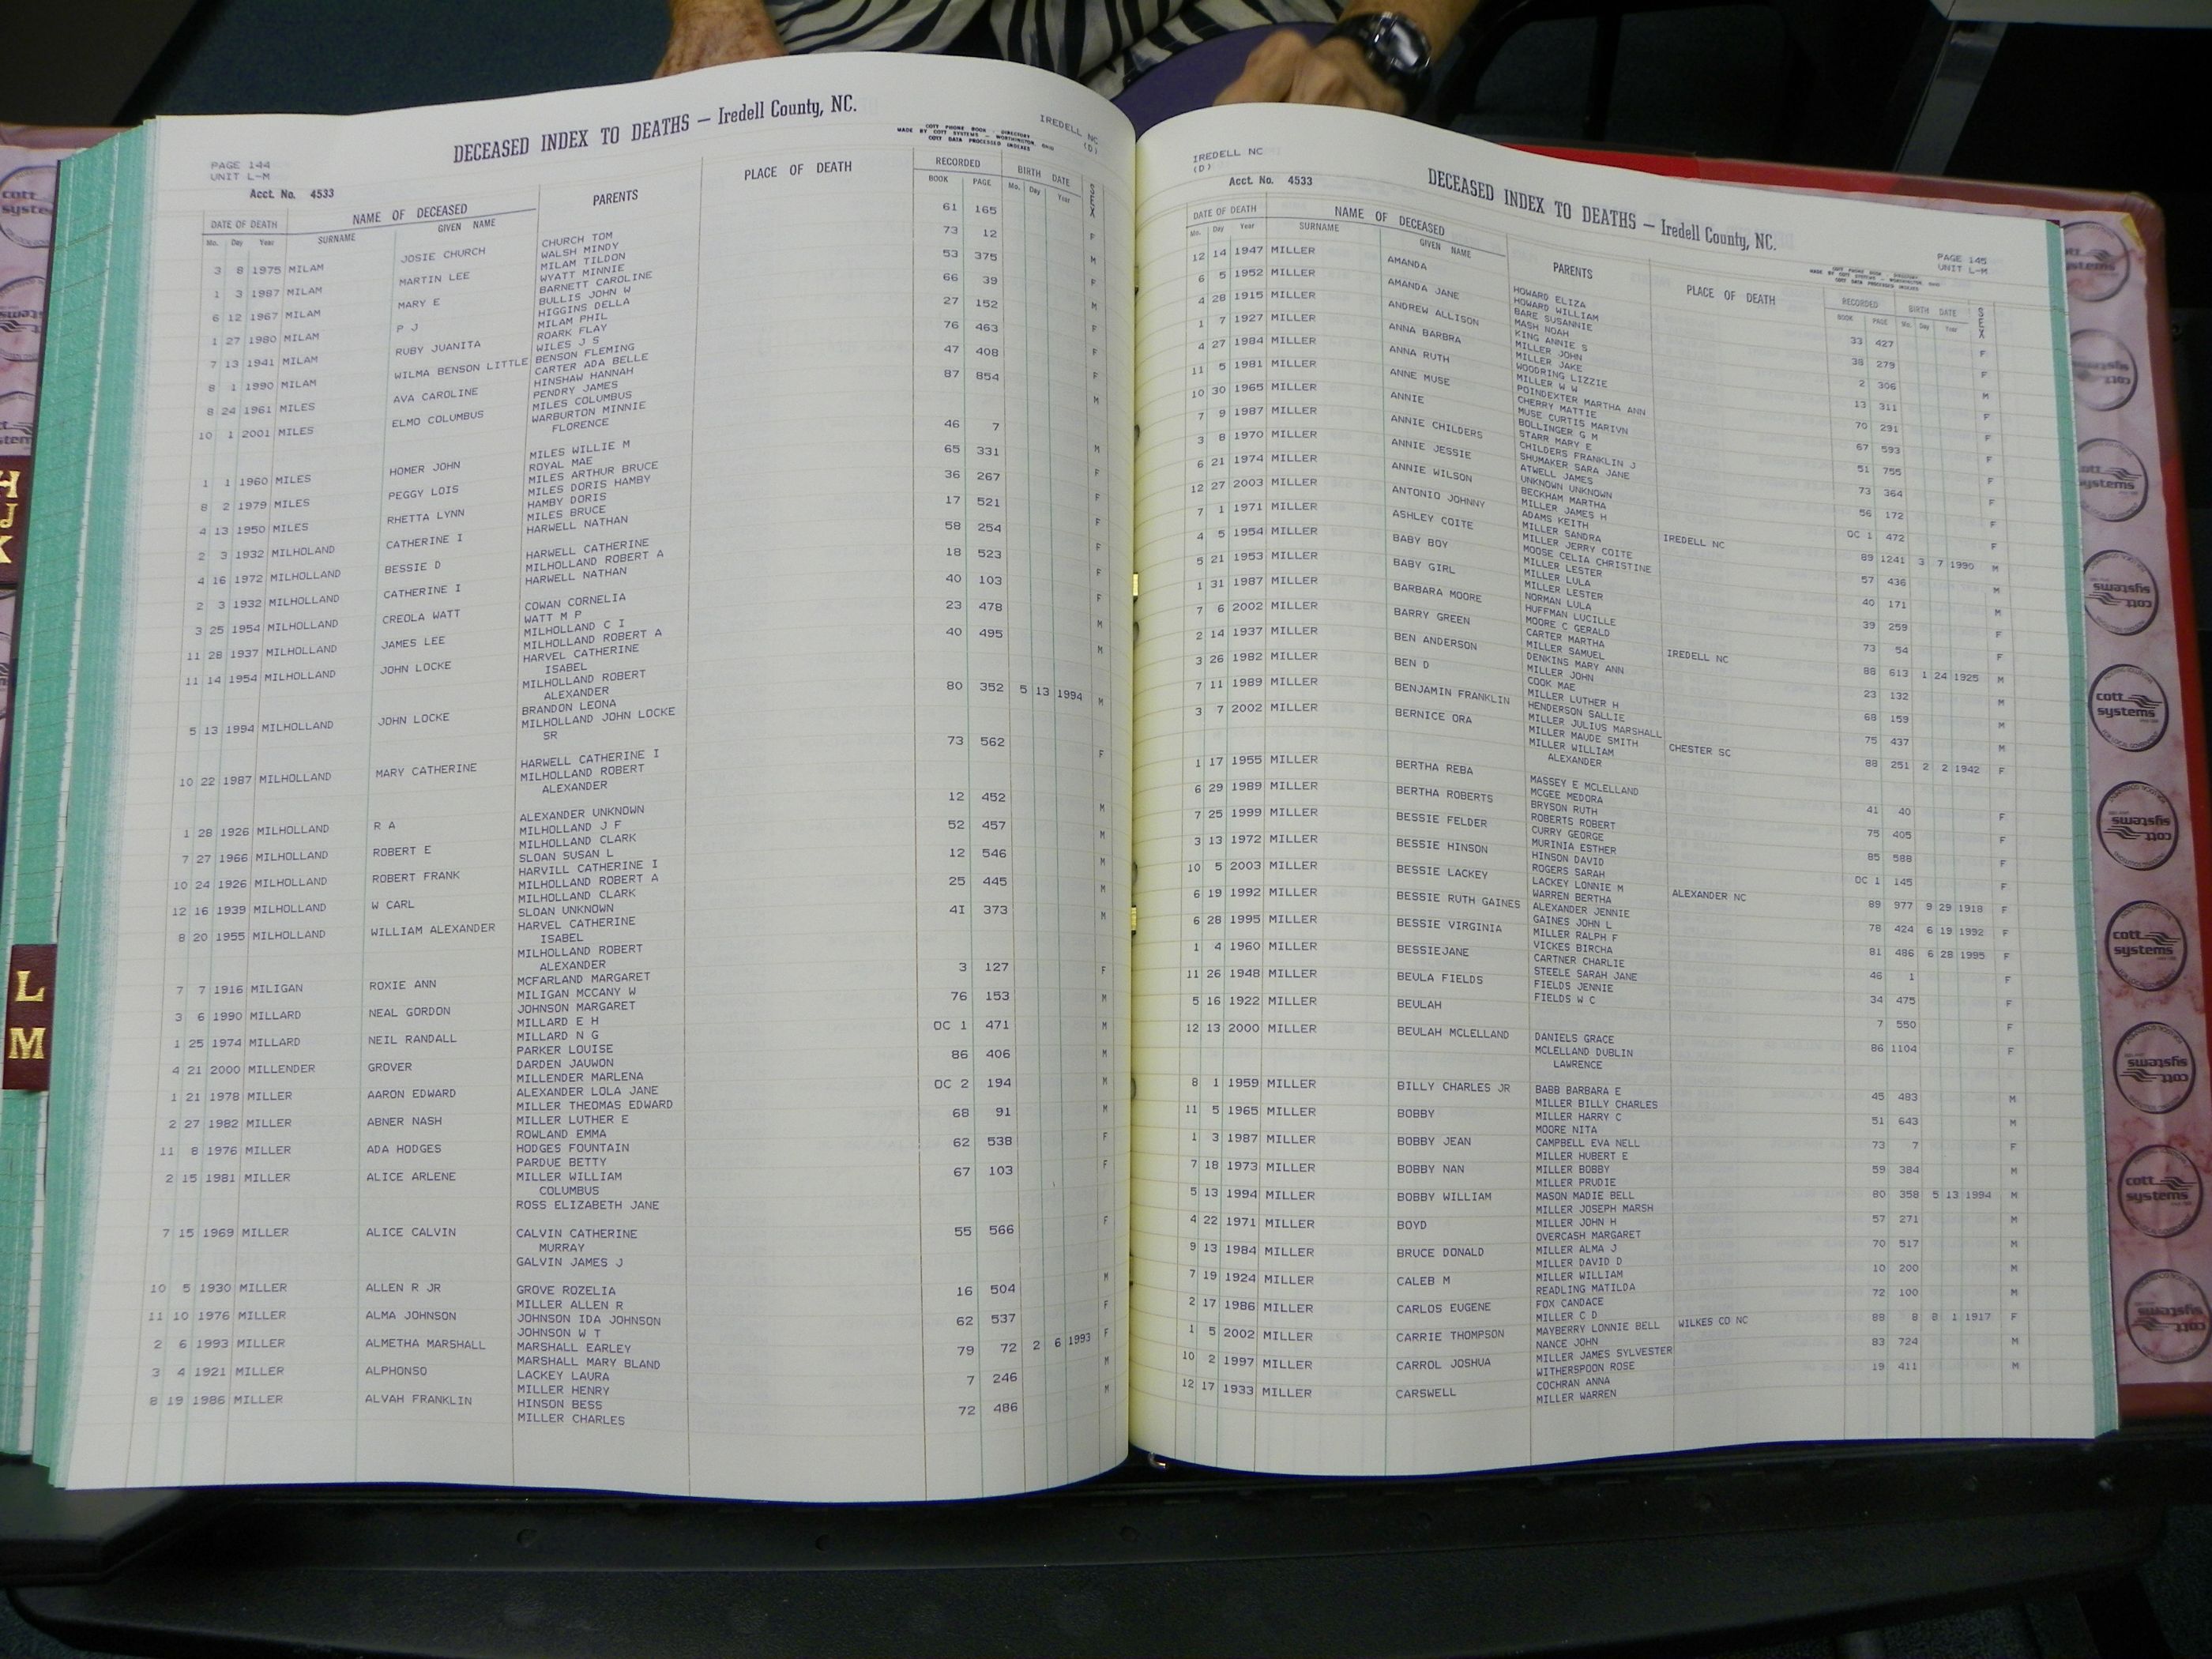 DECEASED INDEX TO DEATHS — Iredell County, NC.
IREDELL NC
(D)
COTT PHONE BOOK - DIRECTORY
MADE BY COTT SYSTEMS - WORTHINGTON, OHIO
COTT DATA PROCESSED INDEXES
PAGE 144
UNIT L-M
Acct. No. 4533
DATE OF DEATH NAME OF DECEASED PARENTS PLACE OF DEATH RECORDED BIRTH DATE SEX
Mo. Day Year SURNAME GIVEN NAME BOOK PAGE Mo. Day Year
3 8 1975 MILAM JOSIE CHURCH CHURCH TOM 61 165 F
WALSH MINDY
1 3 1987 MILAM MARTIN LEE MILAM TILDON 73 12 M
WYATT MINNIE
6 12 1967 MILAM MARY E BARNETT CAROLINE 53 375
BULLIS JOHN W
1 27 1980 MILAM P J HIGGINS DELLA 66 39 M
MILAM PHIL
7 13 1941 MILAM RUBY JUANITA ROARK FLAY 27 152 F
WILES J S
8 1 1990 MILAM WILMA BENSON LITTLE BENSON FLEMING 76 463 F
CARTER ADA BELLE
8 24 1961 MILES AVA CAROLINE HINSHAW HANNAH 47 408 F
PENDRY JAMES
10 1 2001 MILES ELMO COLUMBUS MILES COLUMBUS 87 854 M
WARBURTON MINNIE
FLORENCE
1 1 1960 MILES HOMER JOHN MILES WILLIE M 46 7 M
ROYAL MAE
8 2 1979 MILES PEGGY LOIS MILES ARTHUR BRUCE 65 331 F
MILES DORIS HAMBY
4 13 1950 MILES RHETTA LYNN HAMBY DORIS 36 267 F
MILES BRUCE
2 3 1932 MILHOLAND CATHERINE I HARWELL NATHAN 17 521 F
4 16 1972 MILHOLLAND BESSIE D HARWELL CATHERINE 58 254 F
MILHOLLAND ROBERT A
2 3 1932 MILHOLLAND CATHERINE I HARWELL NATHAN 18 523 F
3 25 1954 MILHOLLAND CREOLA WATT COWAN CORNELIA 40 103 F
WATT M P
11 28 1937 MILHOLLAND JAMES LEE MILHOLLAND C I 23 478 M
MILHOLLAND ROBERT A
11 14 1954 MILHOLLAND JOHN LOCKE HARVEL CATHERINE 40 495 M
ISABEL
MILHOLLAND ROBERT
ALEXANDER
5 13 1994 MILHOLLAND JOHN LOCKE BRANDON LEONA 80 352 5 13 1994 M
MILHOLLAND JOHN LOCKE
SR
10 22 1987 MILHOLLAND MARY CATHERINE HARWELL CATHERINE I 73 562 F
MILHOLLAND ROBERT
ALEXANDER
1 28 1926 MILHOLLAND R A ALEXANDER UNKNOWN 12 452 M
MILHOLLAND J F
7 27 1966 MILHOLLAND ROBERT E MILHOLLAND CLARK 52 457 M
SLOAN SUSAN L
10 24 1926 MILHOLLAND ROBERT FRANK HARVILL CATHERINE I 12 546 M
MILHOLLAND ROBERT A
12 16 1939 MILHOLLAND W CARL MILHOLLAND CLARK 25 445 M
SLOAN UNKNOWN
8 20 1955 MILHOLLAND WILLIAM ALEXANDER HARVEL CATHERINE 41 373 M
ISABEL
MILHOLLAND ROBERT
ALEXANDER
7 7 1916 MILIGAN ROXIE ANN MCFARLAND MARGARET 3 127 F
MILIGAN MCCANY W
3 6 1990 MILLARD NEAL GORDON JOHNSON MARGARET 76 153 M
MILLARD E H
1 25 1974 MILLARD NEIL RANDALL MILLARD N G OC 1 471 M
PARKER LOUISE
4 21 2000 MILLENDER GROVER DARDEN JAUWON 86 406 M
MILLENDER MARLENA
1 21 1978 MILLER AARON EDWARD ALEXANDER LOLA JANE OC 2 194 M
MILLER THEOMAS EDWARD
2 27 1982 MILLER ABNER NASH MILLER LUTHER E 68 91 M
ROWLAND EMMA
11 8 1976 MILLER ADA HODGES HODGES FOUNTAIN 62 538 F
PARDUE BETTY
2 15 1981 MILLER ALICE ARLENE MILLER WILLIAM 67 103 F
COLUMBUS
ROSS ELIZABETH JANE
7 15 1969 MILLER ALICE CALVIN CALVIN CATHERINE 55 566 F
MURRAY
GALVIN JAMES J
10 5 1930 MILLER ALLEN R JR GROVE ROZELIA 16 504 M
MILLER ALLEN R
11 10 1976 MILLER ALMA JOHNSON JOHNSON IDA JOHNSON 62 537 F
JOHNSON W T
2 6 1993 MILLER ALMETHA MARSHALL MARSHALL EARLEY 79 72 2 6 1993 F
MARSHALL MARY BLAND
3 4 1921 MILLER ALPHONSO LACKEY LAURA 7 246 M
MILLER HENRY
8 19 1986 MILLER ALVAH FRANKLIN HINSON BESS 72 486 M
MILLER CHARLES
IREDELL NC
(D)
Acct. No. 4533
DECEASED INDEX TO DEATHS — Iredell County, NC.
PAGE 145
UNIT L-M
DATE OF DEATH NAME OF DECEASED PARENTS PLACE OF DEATH RECORDED BIRTH DATE SEX
Mo. Day Year SURNAME GIVEN NAME BOOK PAGE Mo. Day Year
12 14 1947 MILLER AMANDA HOWARD ELIZA 33 427 F
HOWARD WILLIAM
6 5 1952 MILLER AMANDA JANE BARE SUSANNIE 38 279 F
MASH NOAH
4 28 1915 MILLER ANDREW ALLISON KING ANNIE S 2 306 M
MILLER JOHN
1 7 1927 MILLER ANNA BARBRA MILLER JAKE 13 311 F
WOODRING LIZZIE
4 27 1984 MILLER ANNA RUTH MILLER W W 70 291 F
POINDEXTER MARTHA ANN
11 5 1981 MILLER ANNE MUSE CHERRY MATTIE 67 593 F
MUSE CURTIS MARIVN
10 30 1965 MILLER ANNIE BOLLINGER G M 51 755 F
STARR MARY E
7 9 1987 MILLER ANNIE CHILDERS CHILDERS FRANKLIN J 73 364 F
SHUMAKER SARA JANE
3 8 1970 MILLER ANNIE JESSIE ATWELL JAMES 56 172 F
UNKNOWN UNKNOWN
6 21 1974 MILLER ANNIE WILSON BECKHAM MARTHA OC 1 472 F
MILLER JAMES H
12 27 2003 MILLER ANTONIO JOHNNY ADAMS KEITH IREDELL NC 89 1241 3 7 1990 M
MILLER SANDRA
7 1 1971 MILLER ASHLEY COITE MILLER JERRY COITE 57 436 M
MOOSE CELIA CHRISTINE
4 5 1954 MILLER BABY BOY MILLER LESTER 40 171 M
MILLER LULA
5 21 1953 MILLER BABY GIRL MILLER LESTER 39 259 F
NORMAN LULA
1 31 1987 MILLER BARBARA MOORE HUFFMAN LUCILLE 73 54 F
MOORE C GERALD
7 6 2002 MILLER BARRY GREEN CARTER MARTHA IREDELL NC 88 613 1 24 1925 M
MILLER SAMUEL
2 14 1937 MILLER BEN ANDERSON DENKINS MARY ANN 23 132 M
MILLER JOHN
3 26 1982 MILLER BEN D COOK MAE 68 159 M
MILLER LUTHER H
7 11 1989 MILLER BENJAMIN FRANKLIN HENDERSON SALLIE 75 437 M
MILLER JULIUS MARSHALL
3 7 2002 MILLER BERNICE ORA MILLER MAUDE SMITH CHESTER SC 88 251 2 2 1942 F
MILLER WILLIAM
ALEXANDER
1 17 1955 MILLER BERTHA REBA MASSEY E MCLELLAND 41 40 F
MCGEE MEDORA
6 29 1989 MILLER BERTHA ROBERTS BRYSON RUTH 75 405 F
ROBERTS ROBERT
7 25 1999 MILLER BESSIE FELDER CURRY GEORGE 85 588 F
MURINIA ESTHER
3 13 1972 MILLER BESSIE HINSON HINSON DAVID OC 1 145 F
ROGERS SARAH
10 5 2003 MILLER BESSIE LACKEY LACKEY LONNIE M ALEXANDER NC 89 977 9 29 1918 F
WARREN BERTHA
6 19 1992 MILLER BESSIE RUTH GAINES ALEXANDER JENNIE 78 424 6 19 1992 F
GAINES JOHN L
6 28 1995 MILLER BESSIE VIRGINIA MILLER RALPH F 81 486 6 28 1995 F
VICKES BIRCHA
1 4 1960 MILLER BESSIEJANE CARTNER CHARLIE 46 1 F
STEELE SARAH JANE
11 26 1948 MILLER BEULA FIELDS FIELDS JENNIE 34 475 F
FIELDS W C
5 16 1922 MILLER BEULAH 7 550 F
12 13 2000 MILLER BEULAH MCLELLAND DANIELS GRACE 86 1104 F
MCLELLAND DUBLIN
LAWRENCE
8 1 1959 MILLER BILLY CHARLES JR BABB BARBARA E 45 483 M
MILLER BILLY CHARLES
11 5 1965 MILLER BOBBY MILLER HARRY C 51 643 M
MOORE NITA
1 3 1987 MILLER BOBBY JEAN CAMPBELL EVA NELL 73 7 F
MILLER HUBERT E
7 18 1973 MILLER BOBBY NAN MILLER BOBBY 59 384 M
MILLER PRUDIE
5 13 1994 MILLER BOBBY WILLIAM MASON MADIE BELL 80 358 5 13 1994 M
MILLER JOSEPH MARSH
4 22 1971 MILLER BOYD MILLER JOHN H 57 271 M
OVERCASH MARGARET
9 13 1984 MILLER BRUCE DONALD MILLER ALMA J 70 517 M
MILLER DAVID D
7 19 1924 MILLER CALEB M MILLER WILLIAM 10 200 M
READLING MATILDA
2 17 1986 MILLER CARLOS EUGENE FOX CANDACE 72 100 M
MILLER C D
1 5 2002 MILLER CARRIE THOMPSON MAYBERRY LONNIE BELL WILKES CO NC 88 8 8 1 1917 F
NANCE JOHN
10 2 1997 MILLER CARROL JOSHUA MILLER JAMES SYLVESTER 83 724 M
WITHERSPOON ROSE
12 17 1933 MILLER CARSWELL COCHRAN ANNA 19 411 M
MILLER WARREN
H
J
K
L
M
cott
systems